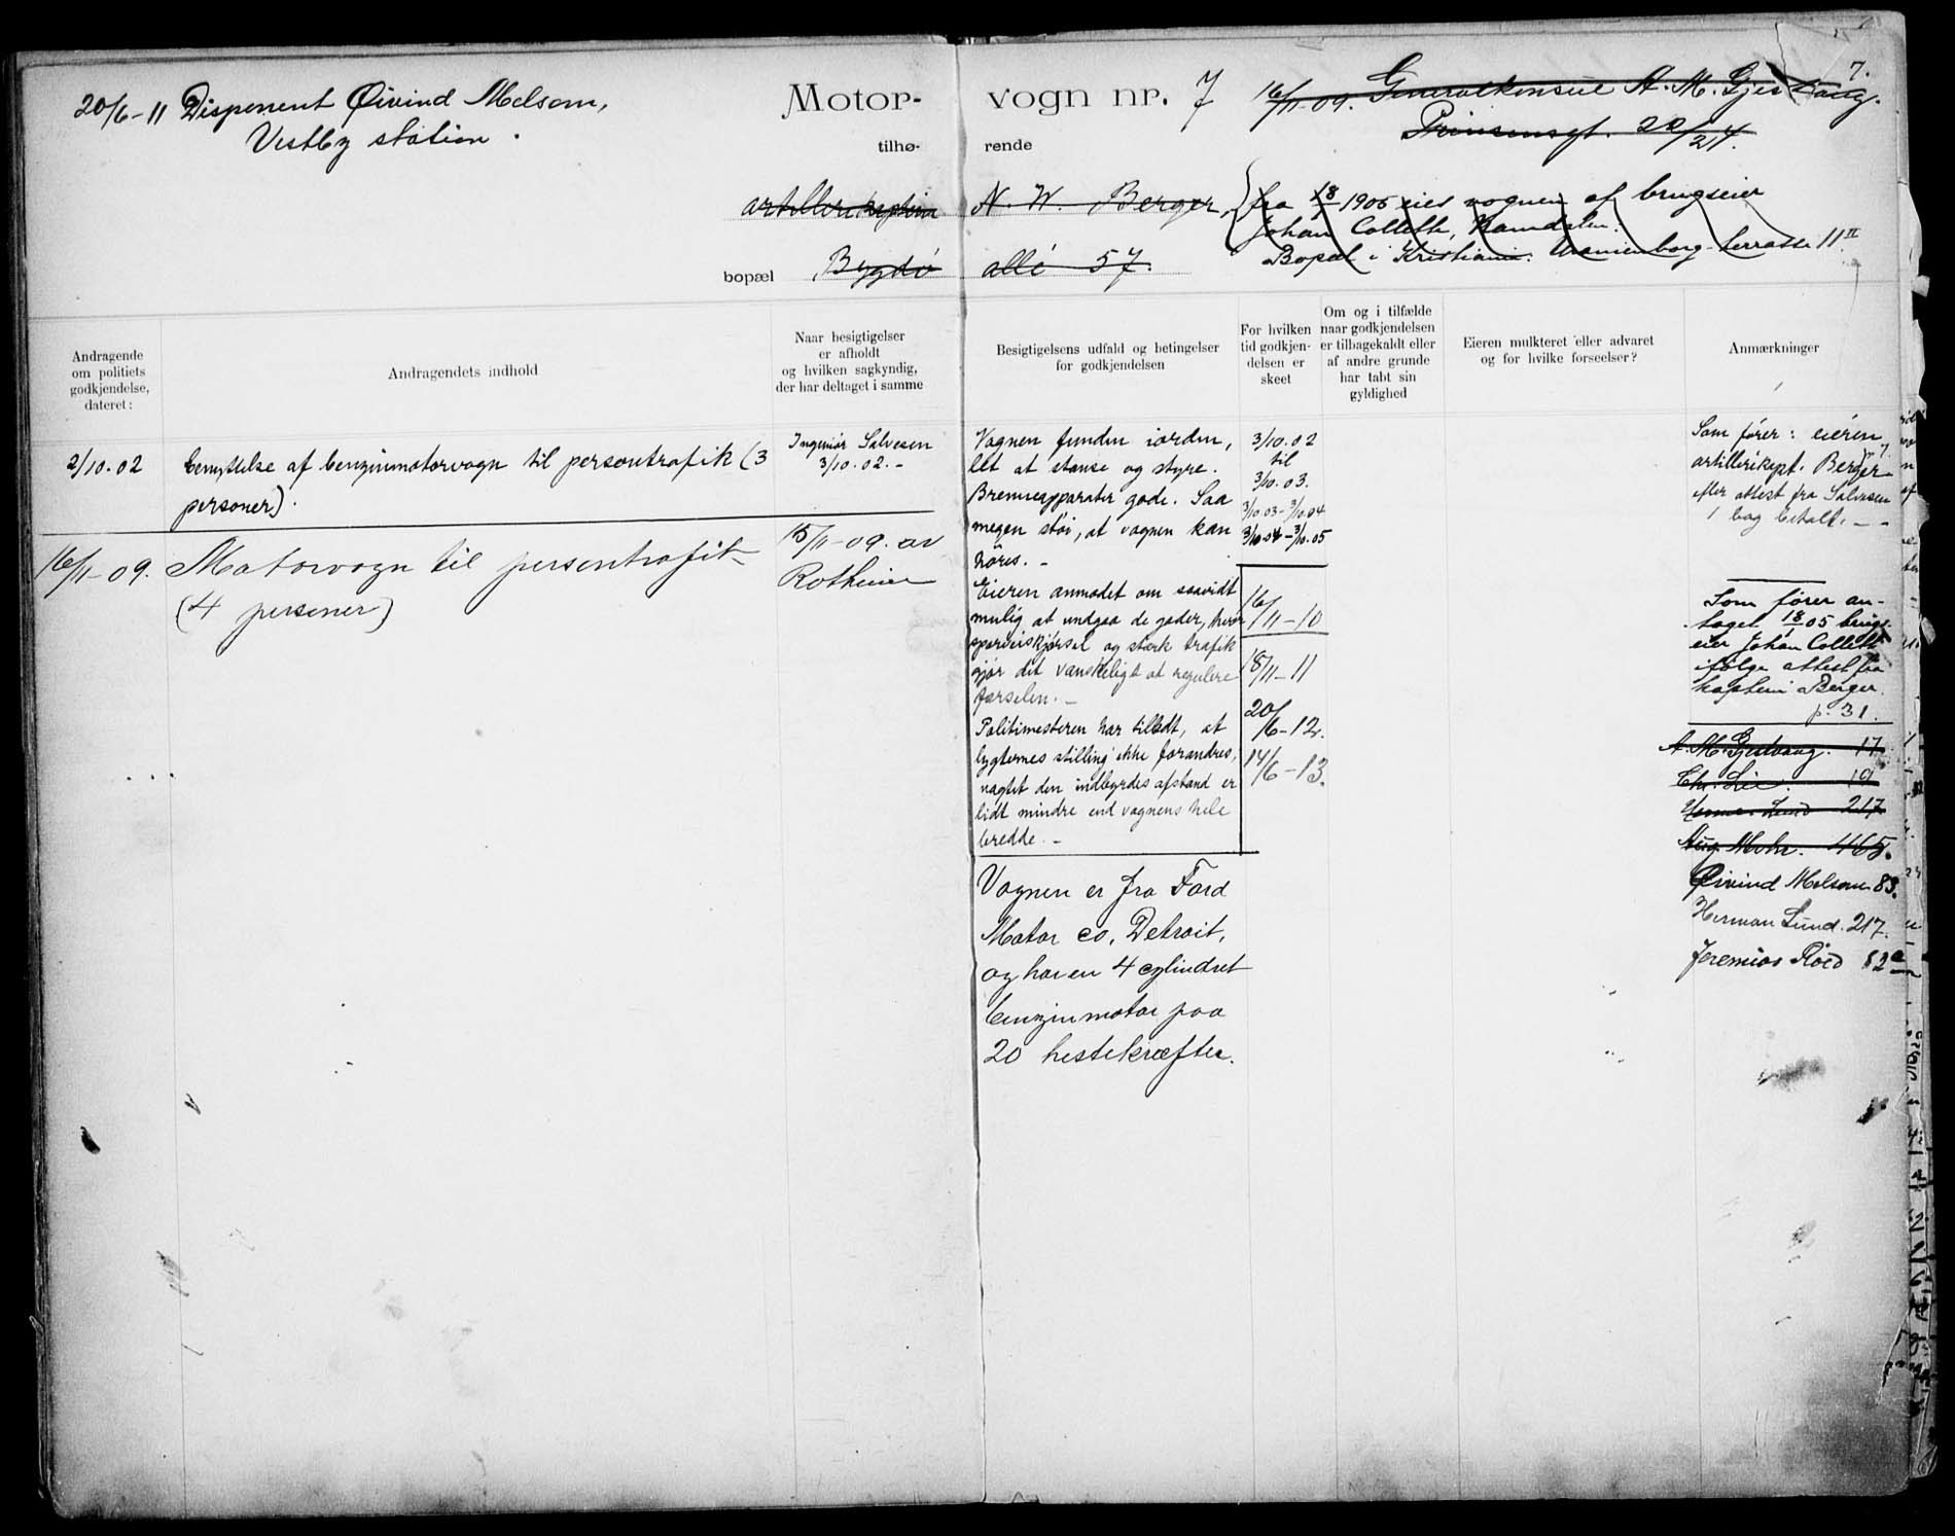 7.
20/6-11 Disponent Øivind Melsom,
Vestby station.
Motor- vogn nr. 7
16/11-09. Generalkonsul A. M. Gjestvang.
Prinsensgt. 22/24.
tilhørende
artillerikaptein N. W. Berger,
bopæl Bygdø allé 57.
fra 18/7 1905 eies vognen af brugseier
Johan Collett, Namdalen.
Bopæl i Kristiania: Uranienborg terrasse 11 II
Andragende
om politiets
godkjendelse,
dateret:
Andragendets indhold
Naar besigtigelser
er afholdt
og hvilken sagkyndig,
der har deltaget i samme
Besigtigelsens udfald og betingelser
for godkjendelsen
For hvilken
tid godkjen-
delsen er
skeet
Om og i tilfælde
naar godkjendelsen
er tilbagekaldt eller
af andre grunde
har tabt sin
gyldighed
Eieren mulkteret eller advaret
og for hvilke forseelser?
Anmærkninger
2/10.02
Benyttelse af benzinmotorvogn til persontrafik (3
personer).
Ingeniør Salvesen
3/10.02. -
Vognen funden iorden,
let at stanse og styre.
Bremseapparater gode. Saa
megen støi, at vognen kan
høres. -
Eieren anmodet om saavidt
mulig at undgaa de gader, hvor
sporveiskjørsel og stærk trafik
gjør det vanskeligt at regulere
færselen. -
Politimesteren har tilladt, at
lygternes stilling ikke forandres,
uagtet den indbyrdes afstand er
lidt mindre end vognens hele
bredde. -
3/10.02
til
3/10.03.
3/10.03-3/10.04
3/10.04-3/10.05
16/11-10
18/11-11
20/6-12.
14/6-13.
Som fører: eieren
artillerikapt. Berger
efter attest fra Salvesen
1 bog betalt. - -
16/11-09.
Motorvogn til persontrafik
(4 personer)
15/11-09. av
Rotheim
Vognen er fra Ford
Motor co. Detroit,
og har en 4 cylindret
benzinmotor paa
20 hestekræfter.
Som fører an-
taget 18/7 05 brugs-
eier Johan Collett
ifølge attest fra
kaptein Berger.
p. 31.
A. M. Gjestvang. 17
Chr. Lie. 19
Herman Lund 217
Aug. Mohr. 465.
Øivind Melsom 83.
Herman Lund. 217.
Jeremias Röed 82